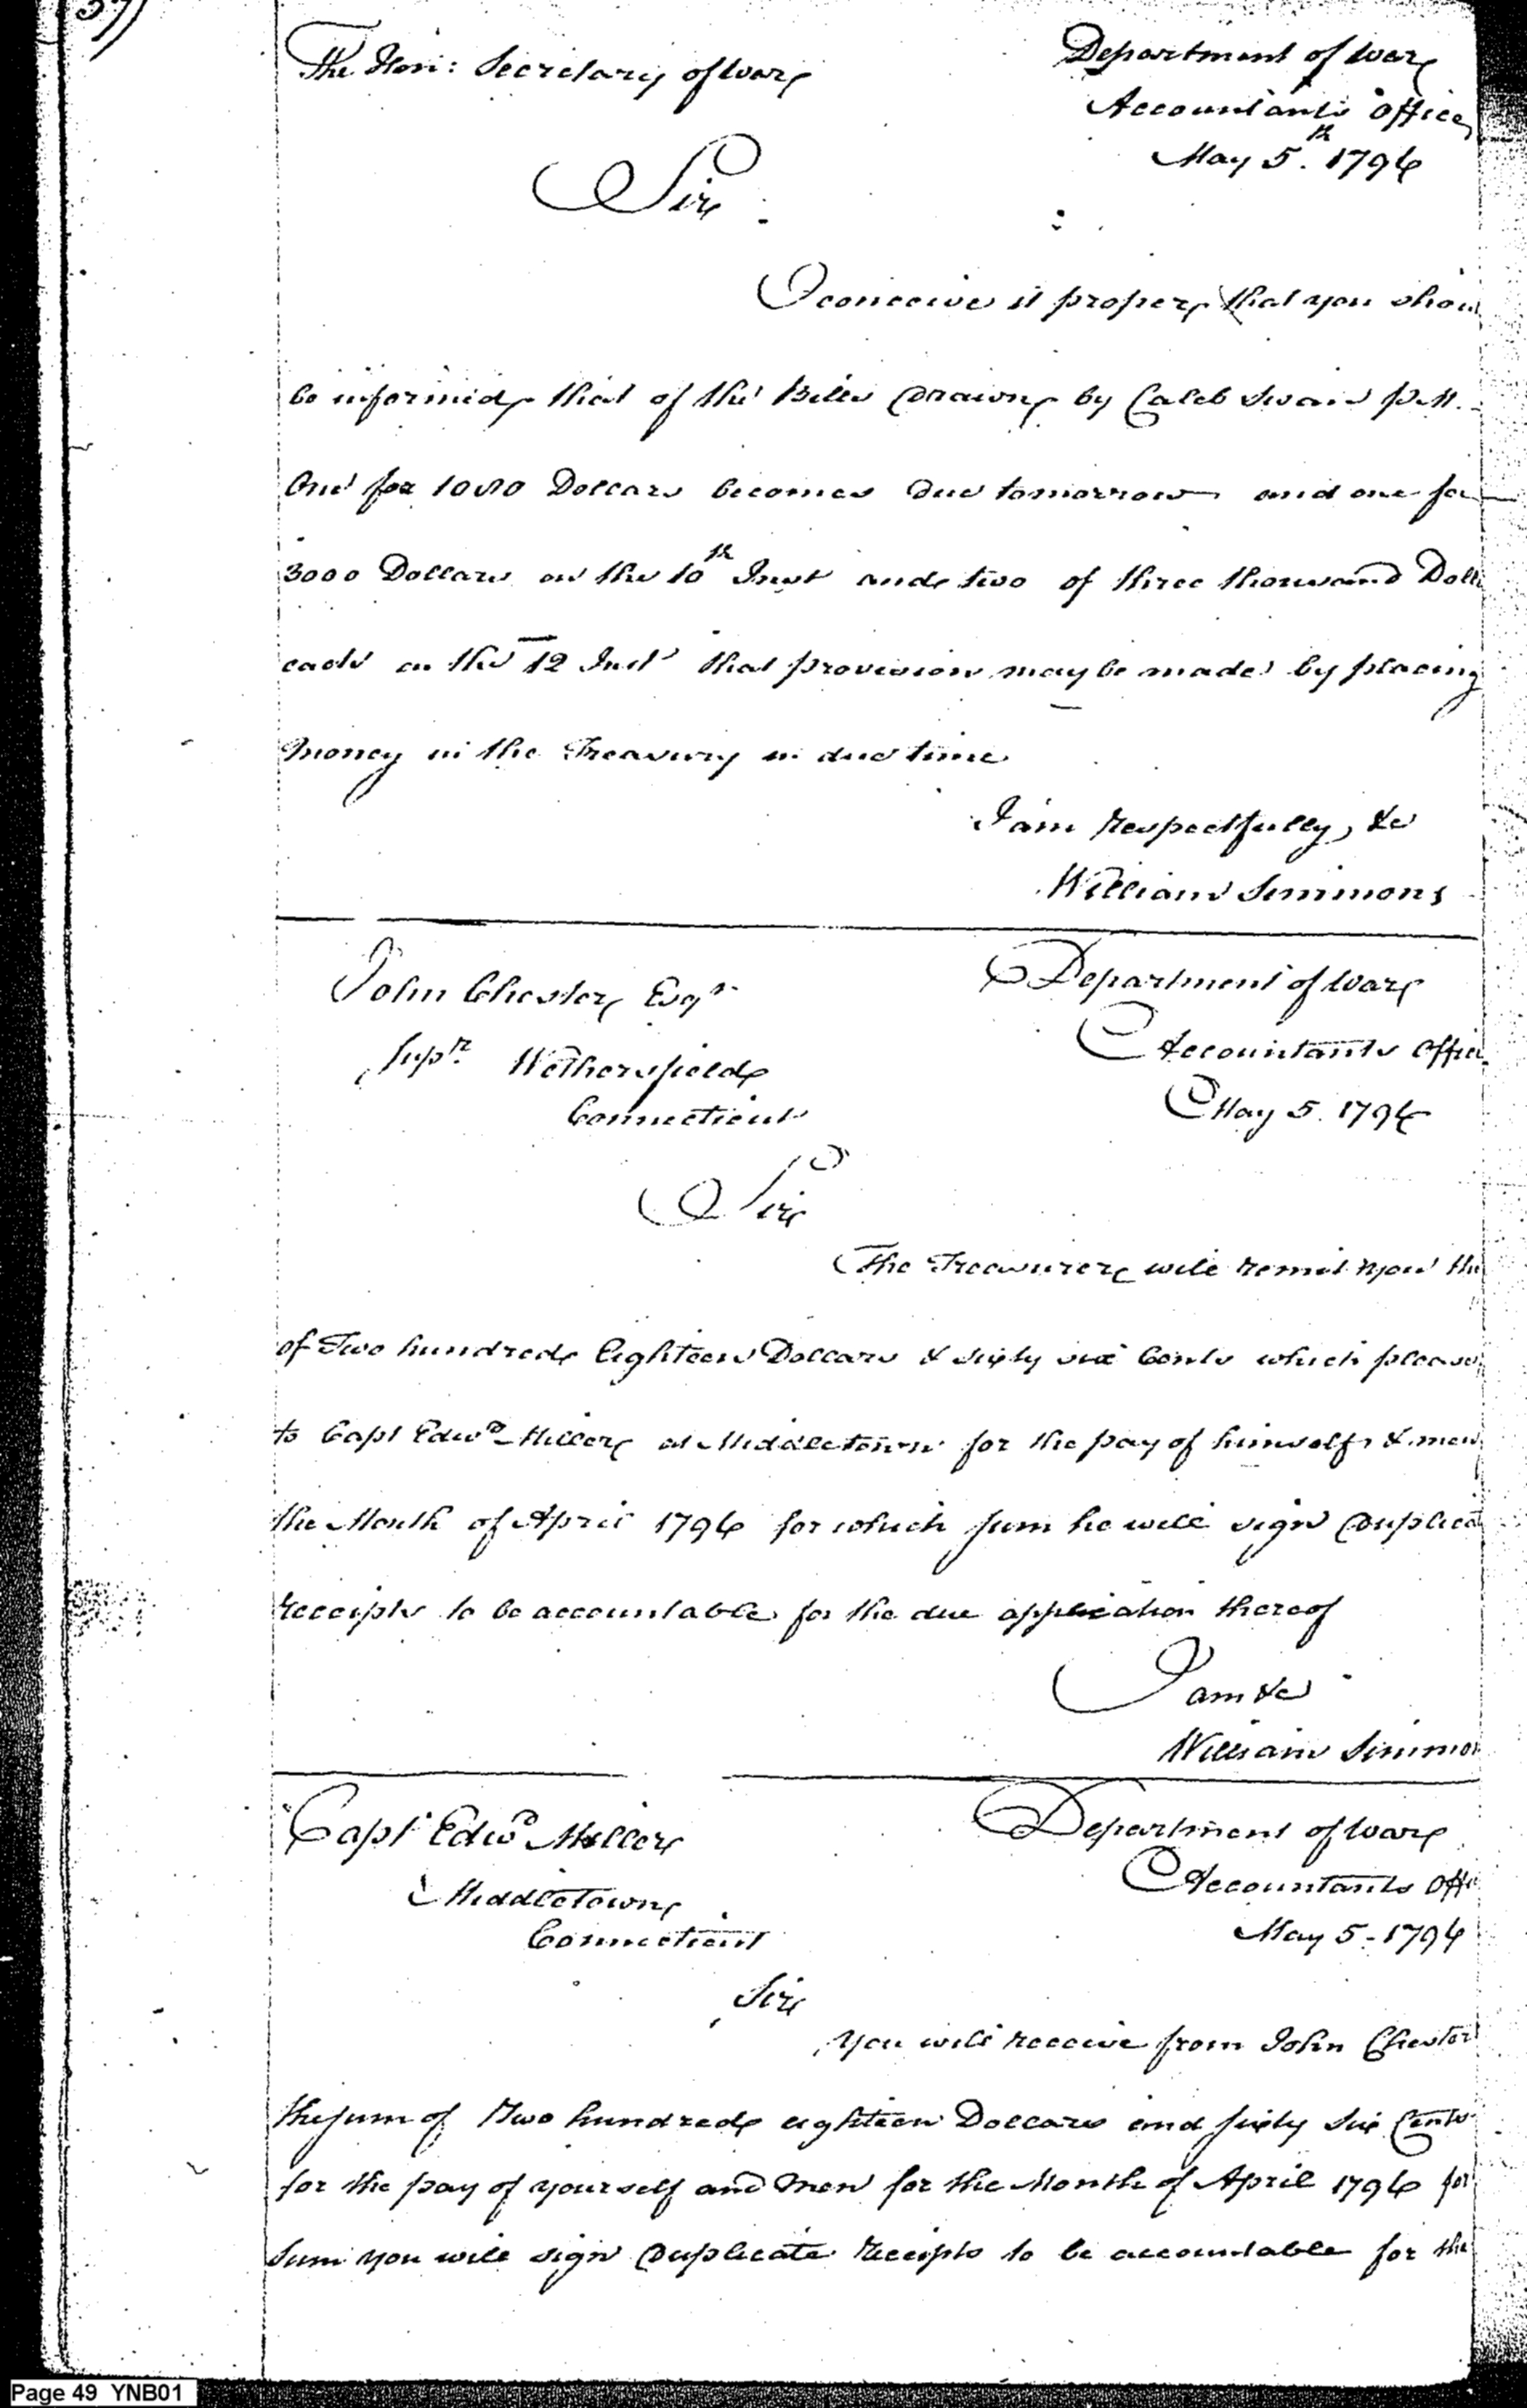 The Hon: Secretary of War
Department of War
Accountants Office
May 5th. 1796
Sir
I conceive it proper that you shou
be informed that of the Bills Drawn by Caleb Swan P.M.
One for 1000 Dollars becomes due tomorrow and one for
3000 Dollars on the 10th Inst and two of three thousand Doll
each on the 12 Inst that provision may be made by placing
money in the Treasury in due time
I am respectfully, &c
William Simmons
John Chester Esqr
Supr. Wethersfield
Connecticut
Department of War
Accountants Office
May 5. 1796
Sir
The Treasurer will remit you the
of Two hundred Eighteen Dollars & sixty six Cents which please
to Capt Edwd Miller at Middletown for the pay of himself & men
the Month of April 1796 for which sum he will sign Duplica
receipts to be accountable for the due application thereof
I am &c
William Simmon
Capt Edwd Miller
Middletown
Connecticut
Department of War
Accountants Offi
May 5 - 1796
Sir
You will receive from John Chester
the sum of Two hundred eighteen Dollars and sixty six Cents
for the pay of yourself and men for the Month of April 1796 for
Sum you will sign Duplicate receipts to be accountable for the
Page 49 YNB01